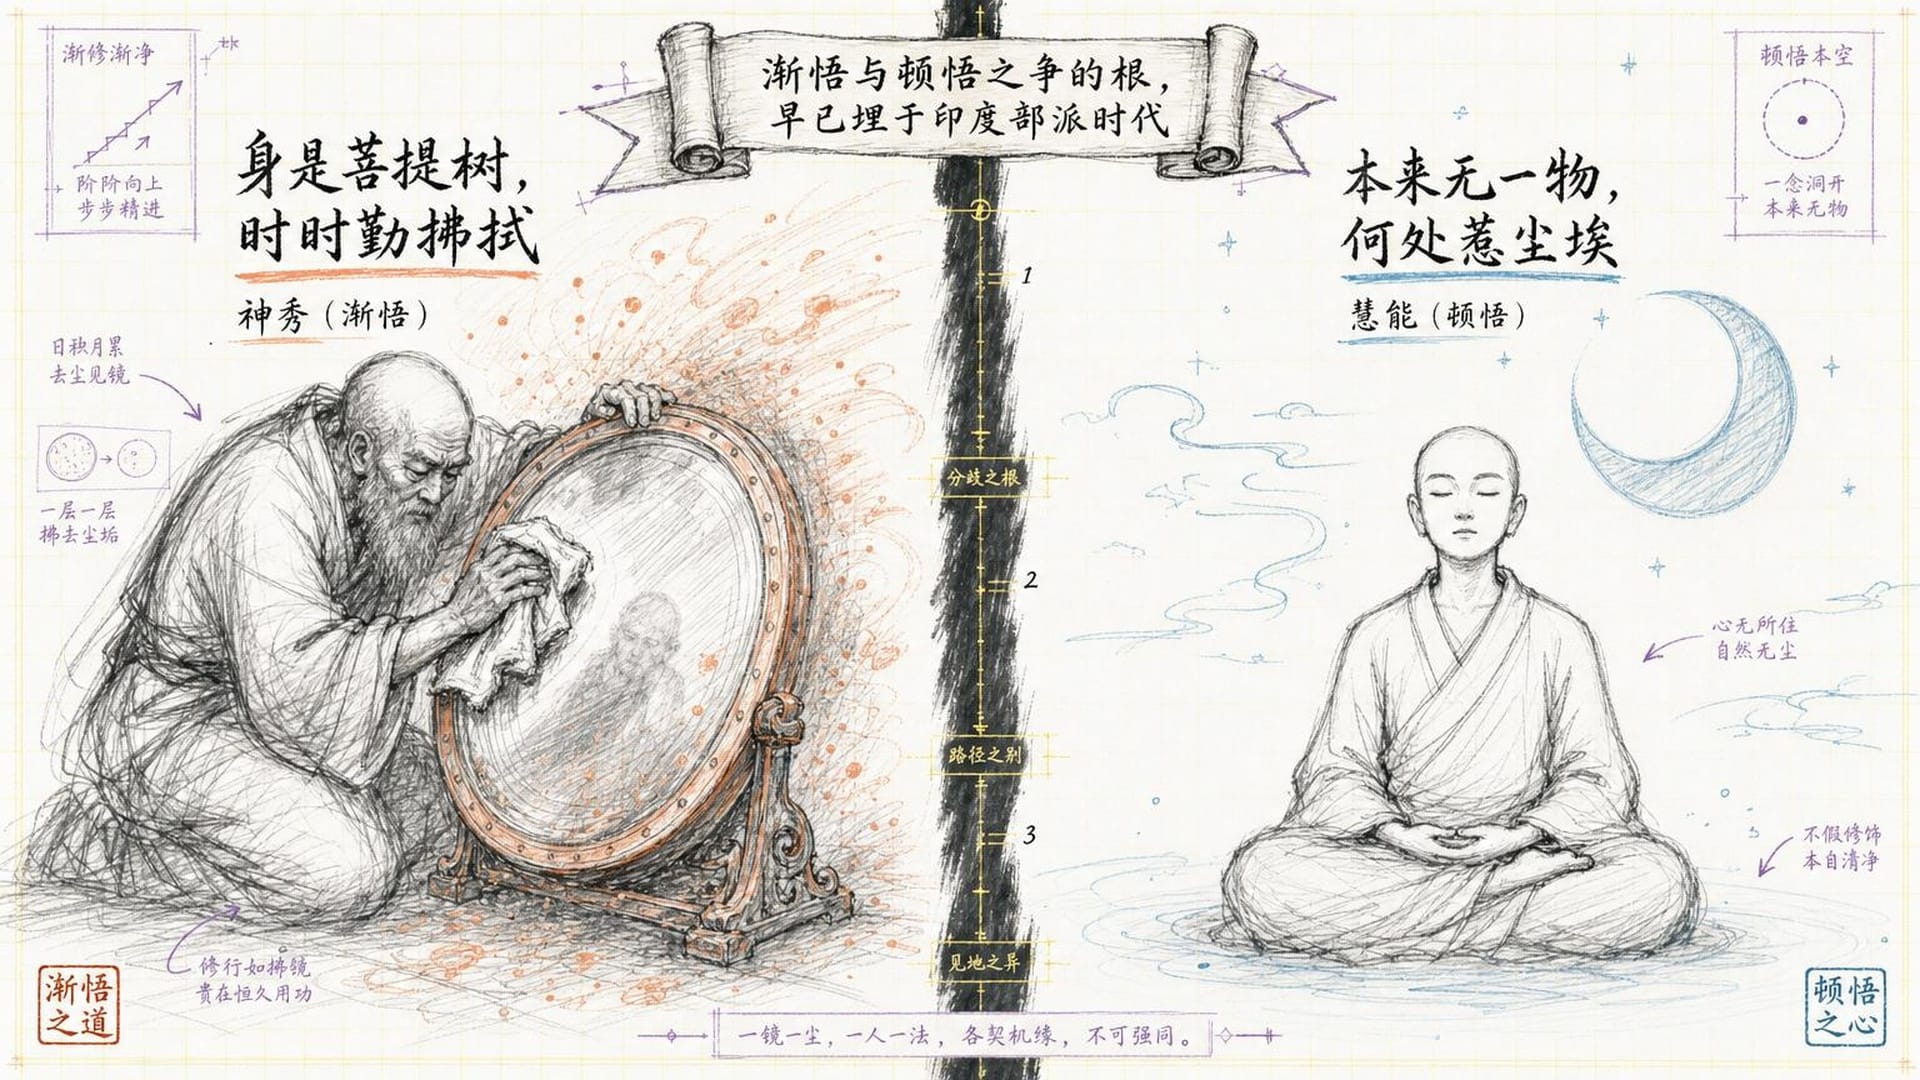 渐悟与顿悟之争的根，
早已埋于印度部派时代
渐修渐净
阶阶向上
步步精进
身是菩提树，
时时勤拂拭
神秀（渐悟）
日积月累
去尘见镜
一层一层
拂去尘垢
修行如拂镜
贵在恒久用功
渐悟
之道
1
分歧之根
2
路径之别
3
见地之异
顿悟本空
一念洞开
本来无物
本来无一物，
何处惹尘埃
慧能（顿悟）
心无所住
自然无尘
不假修饰
本自清净
顿悟
之心
一镜一尘，一人一法，各契机缘，不可强同。